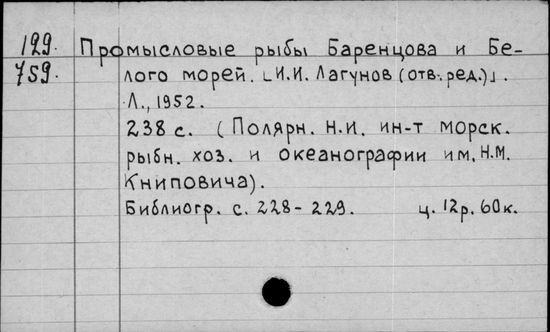 199. Промысловые рыбы Баренцова и Бе-
759. лого морей. [И.И. Лагунов (отв. ред.)].
Л., 1952.
238 с. (Полярн. н.и. ин-т морск.
рыбн. хоз. и океанографии им. Н.М.
Книповича).
Библиогр. с. 228-229. ц. 12р. 60к.